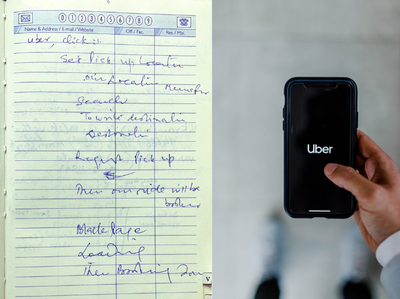 0 1 2 3 4 5 6 7 8 9
Name & Address / E.mail / Website Off / No. Res / Mo.
Uber, click it
Set Pick up Locatin
our Locatin
Search
To write destinatin
Destinatin
Request Pick up
Then our ride will be
Black Page
Loading
Then Booking
V
Uber